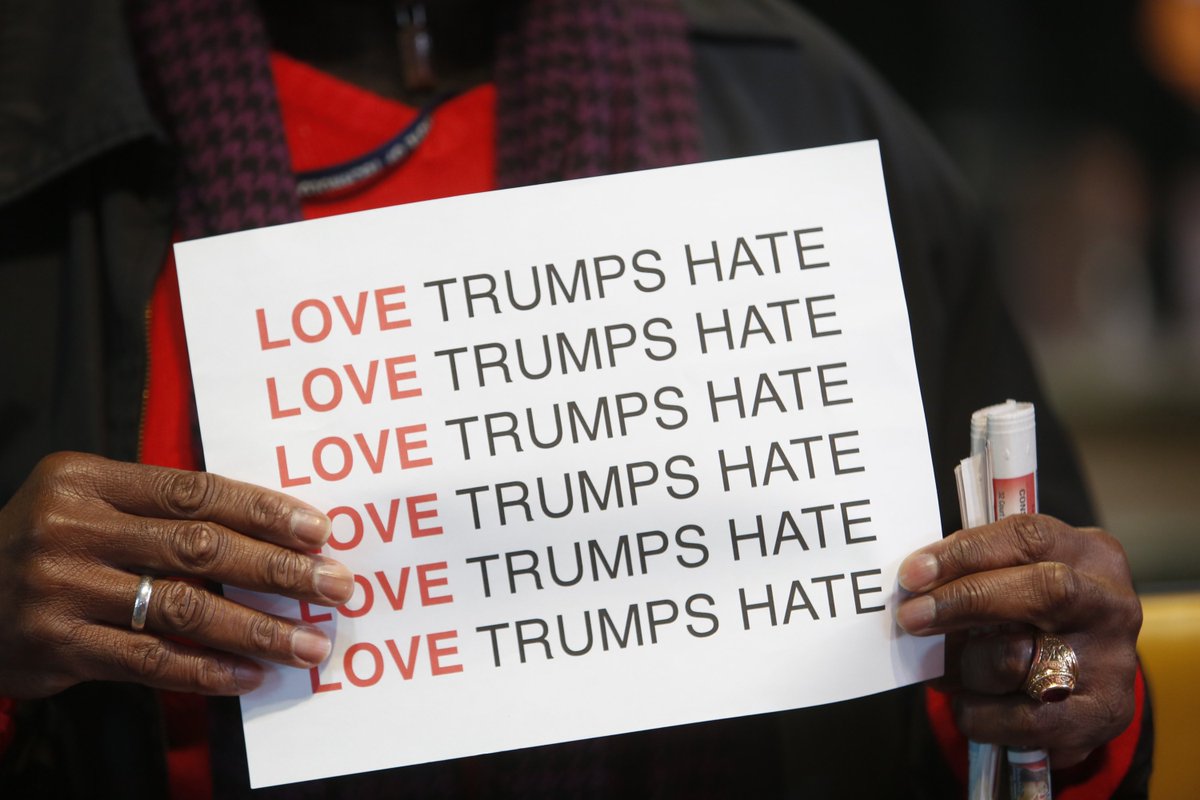 LOVE TRUMPS HATE
LOVE TRUMPS HATE
LOVE TRUMPS HATE
LOVE TRUMPS HATE
LOVE TRUMPS HATE
LOVE TRUMPS HATE